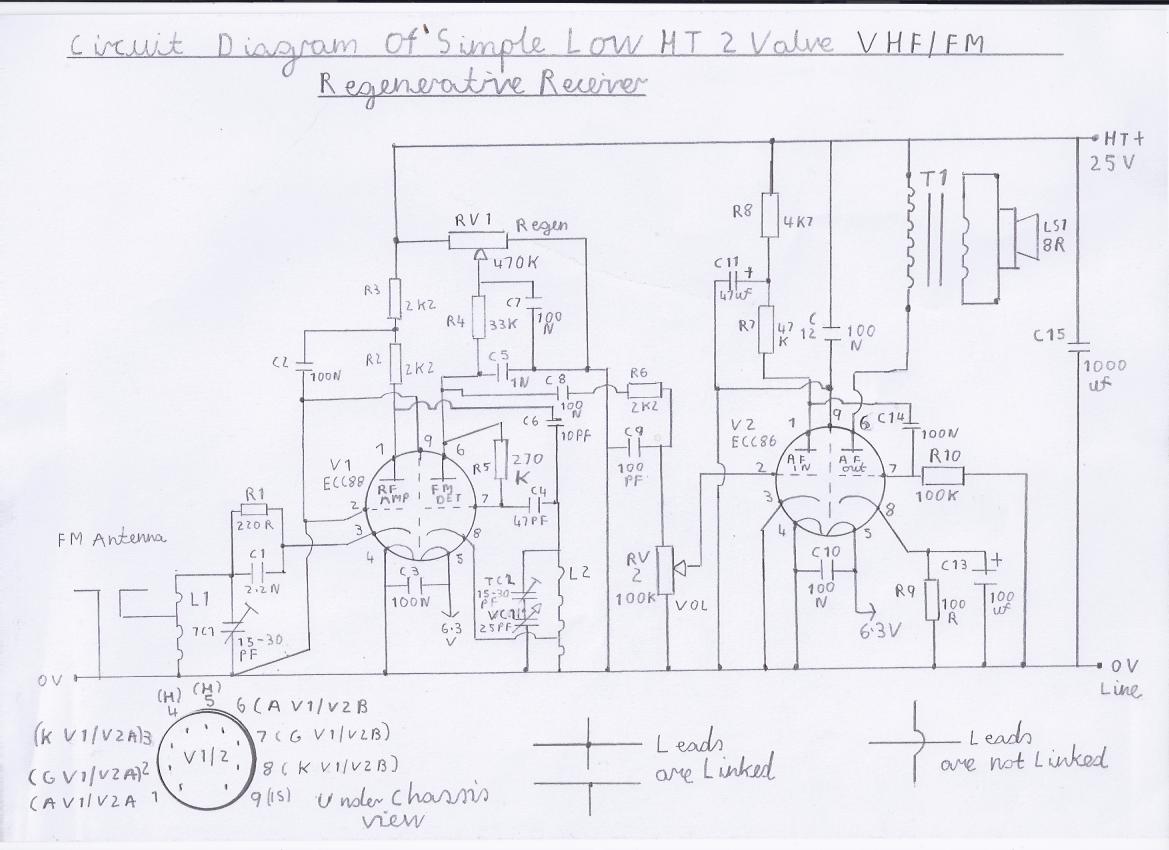 Circuit Diagram Of Simple Low HT 2 Valve VHF/FM
Regenerative Receiver
HT+
25V
RV1 Regen
470K
R8
4K7
T1
LS1
8R
C11 +
47uf
R3
2K2
R4
33K
C7
100
N
R7
47
K
C
12
100
N
C15
1000
uf
C2
100N
R2
2K2
C5
1N
C8
100
N
R6
2K2
C6
10PF
C9
100
PF
V2
ECC86
1
9
6
C14
100N
V1
ECC88
1
9
6
R5
270
K
AF
IN
AF
out
2
7
R10
100K
RF
AMP
FM
DET
R1
220R
2
7
C4
47PF
3
8
3
8
4
5
4
5
FM Antenna
C1
2.2N
C3
100N
L1
TC1
15-30
PF
6.3
V
15-30
PF
25PF
L2
RV
2
100K
VOL
C10
100
N
6.3V
R9
100
R
C13
+
100
uf
0V
0V
Line
(H)
4
(H)
5
6 (A V1/V2B
(K V1/V2A)3
7 (G V1/V2B)
V1/2
(G V1/V2A)2
8 (K V1/V2B)
(A V1/V2A 1
9 (IS) Under Chassis
view
Leads
are Linked
Leads
are not Linked